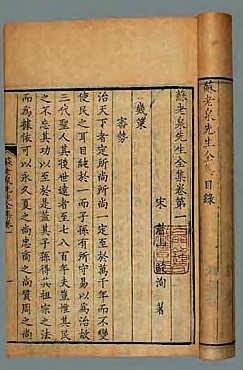 蘇老泉先生全集目錄
蘇老泉先生全集卷第一
宋 眉山蘇 洵 著
幾策
審勢
治天下者定所尚所尚一定至於萬千年而不變
使民之耳目純於一而子孫有所守易以為治故
三代聖人其後世遠者至七八百年夫豈惟其民
之不忘其功以至於是蓋其子孫得其祖宗之法
而為據依可以永久夏之尚忠商之尚質周之尚
蘇老泉先生全集卷一